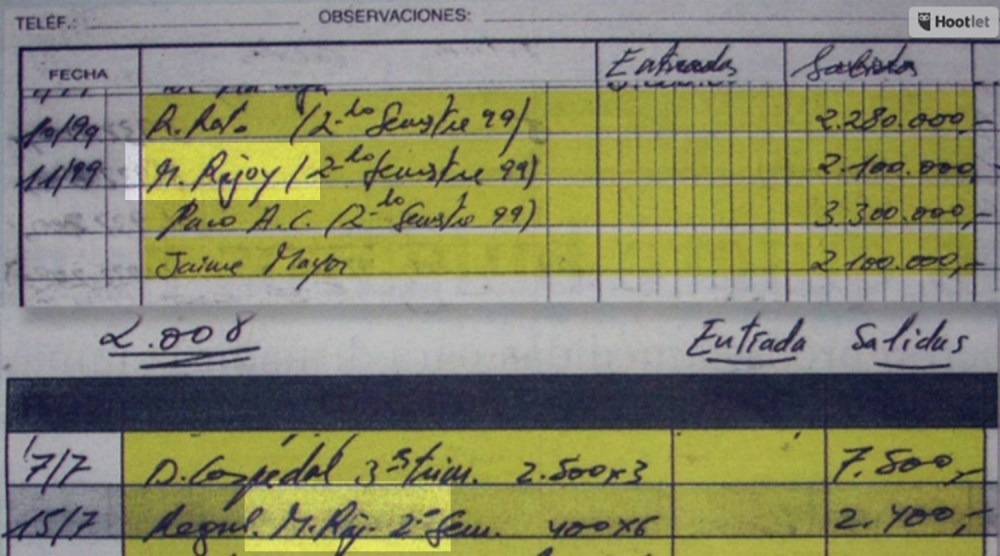 Hootlet
TELÉF.: OBSERVACIONES:
FECHA Entrada Salida
10/99 R. Rato (2-do Semestre 99) 2.280.000,-
11/99 M. Rajoy (2-do Semestre 99) 2.100.000,
Paco A.C. (2-do Semestre 99) 3.300.000,-
Jaime Mayor 2.100.000,-
2.008 Entrada Salidas
7/7 D. Cospedal 3er trim. 2.500x3 7.500,-
15/7 M. Raj. 2º Sem. 400x6 2.400,-